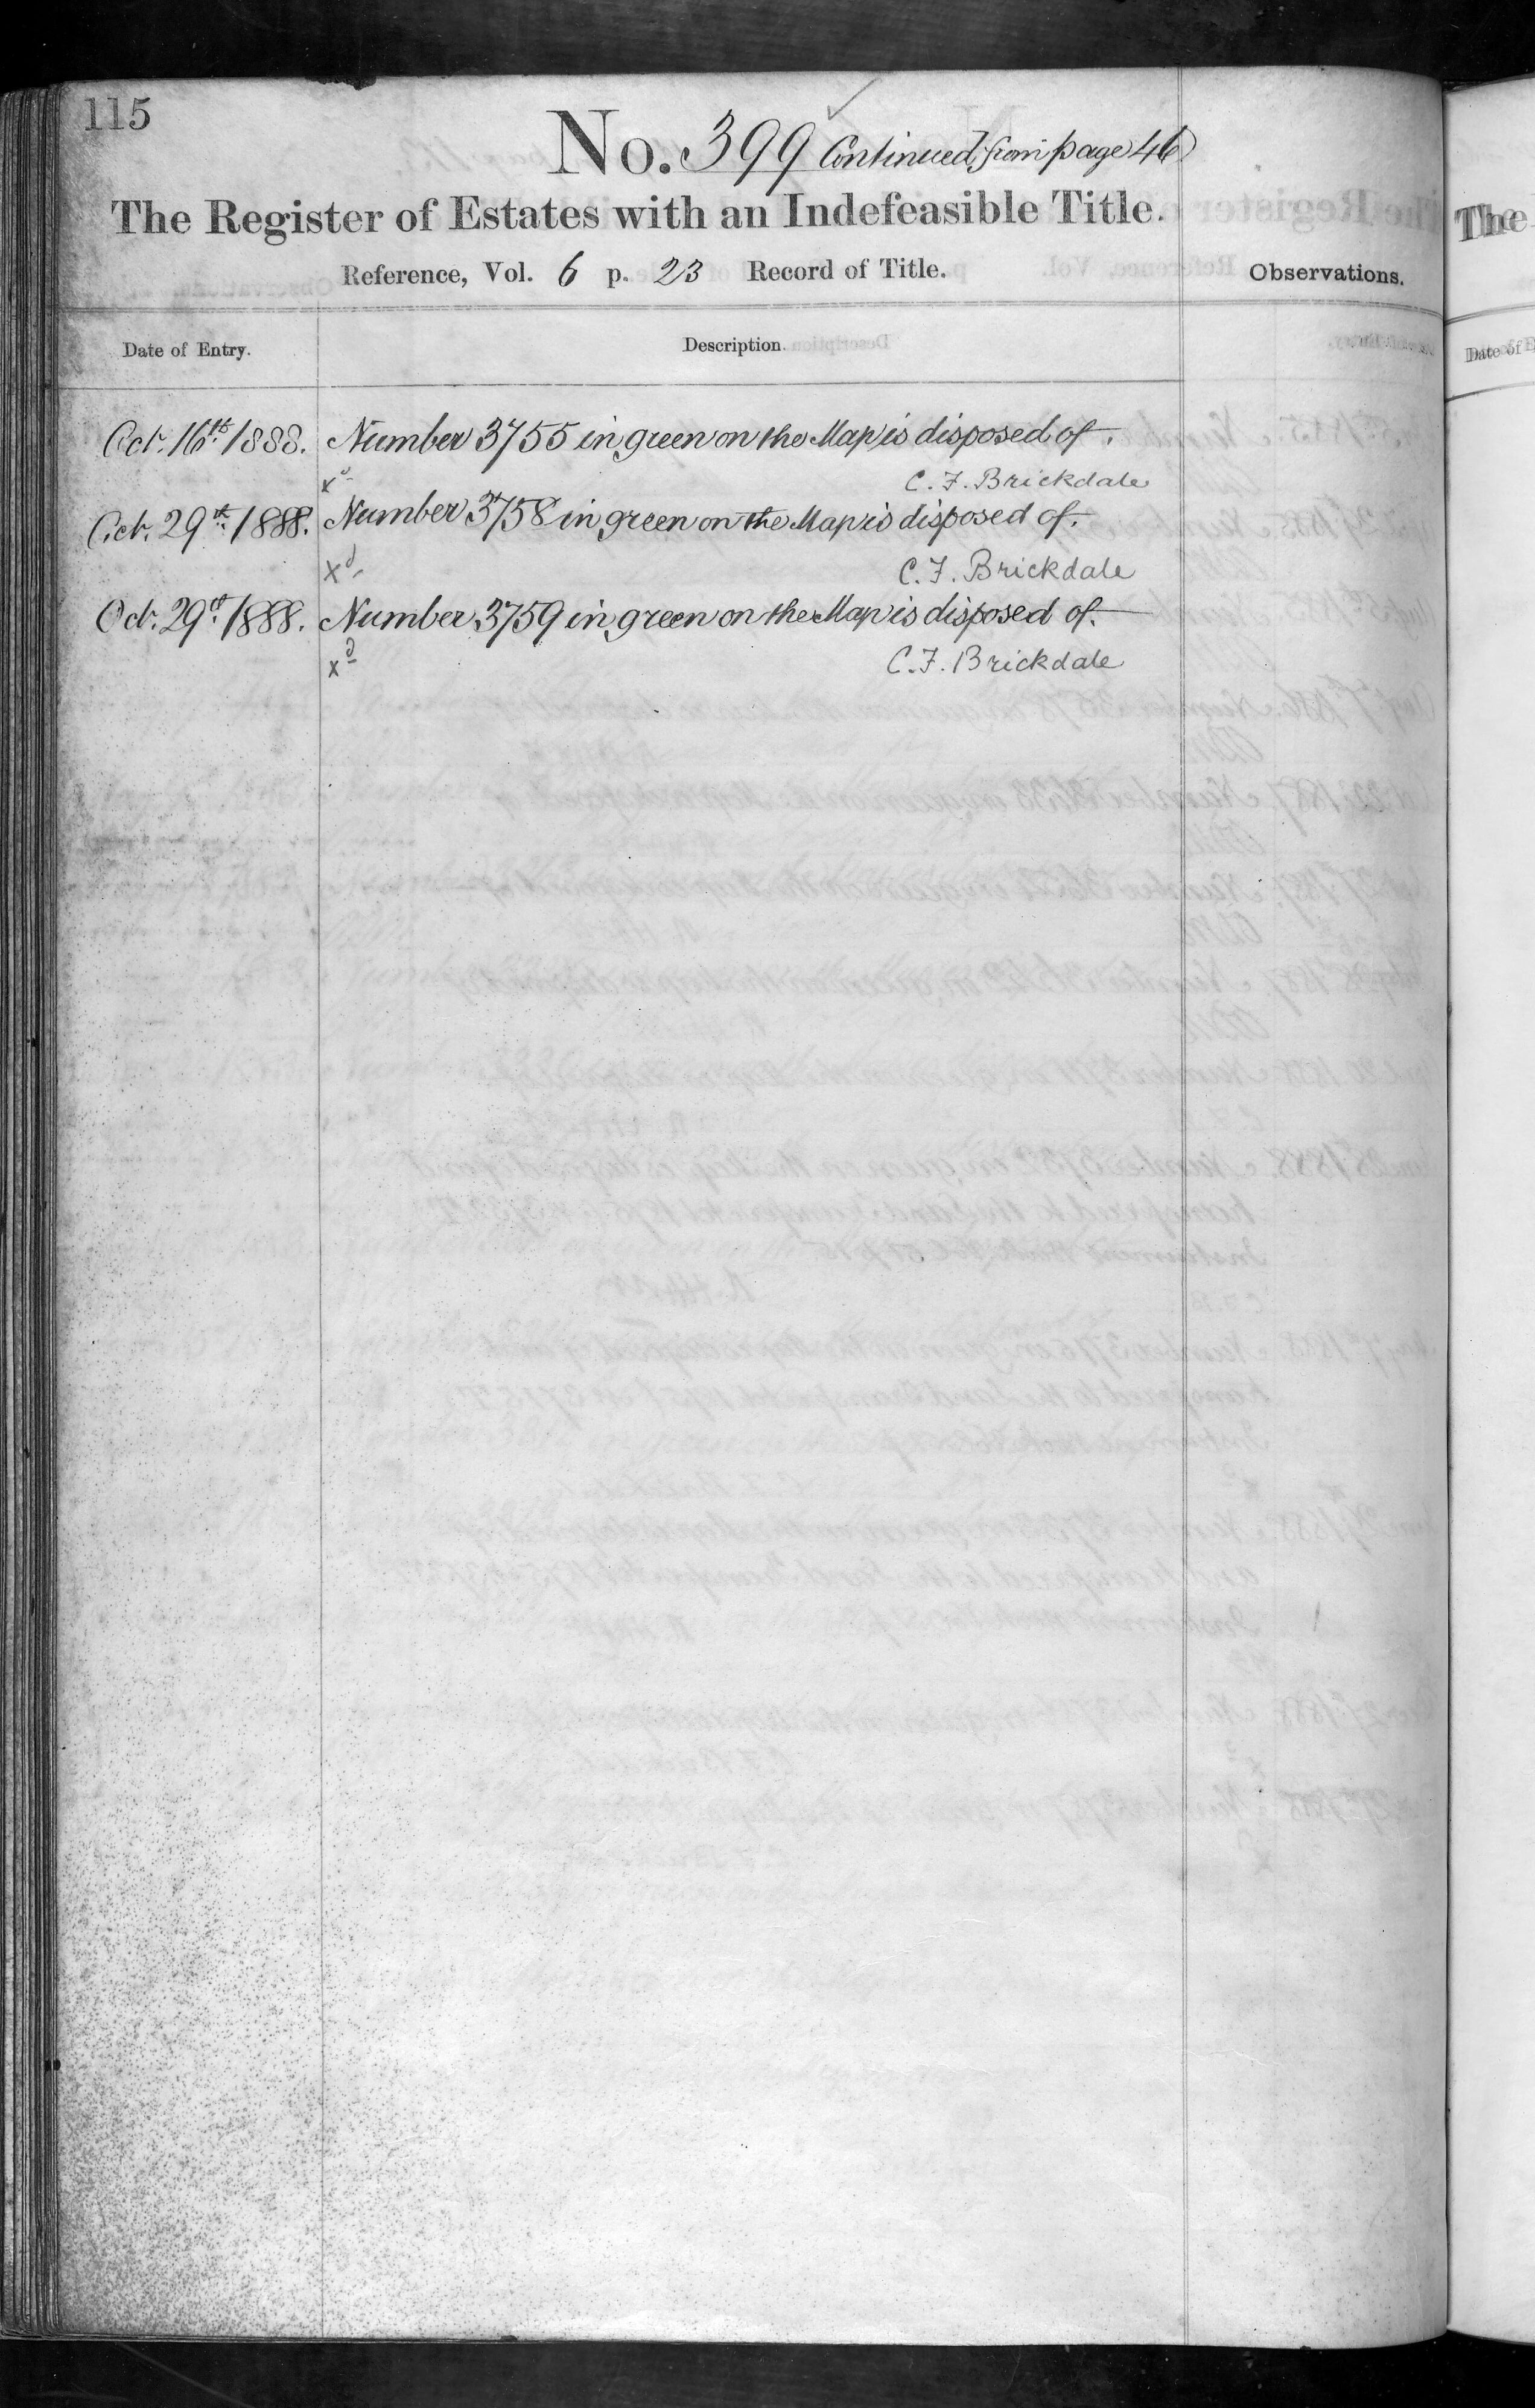 115
No. 399 Continued from page 46
The Register of Estates with an Indefeasible Title.
Reference, Vol. 6 p. 23 Record of Title.
Observations.
Date of Entry.
Description.
Oct. 16th 1888. Number 3755 in green on the Map is disposed of.
xd C. F. Brickdale
Oct. 29th 1888. Number 3758 in green on the Map is disposed of.
xd C. F. Brickdale
Oct. 29th 1888. Number 3759 in green on the Map is disposed of.
xd C. F. Brickdale
The
Date of E